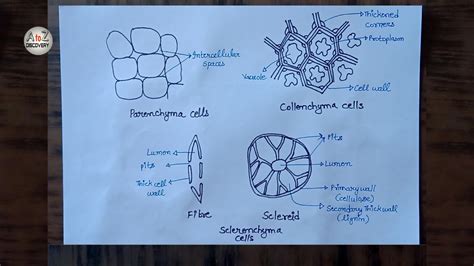 A to Z
DISCOVERY
Intercellular
Spaces
Parenchyma cells
Thickened
corners
Protoplasm
Vacuole
Cell wall
Collenchyma cells
Lumen
Pits
Thick cell
wall
Fibre
Pits
Lumen
Primary wall
(cellulose)
Secondary thick wall
(lignin)
Sclereid
Sclerenchyma
cells